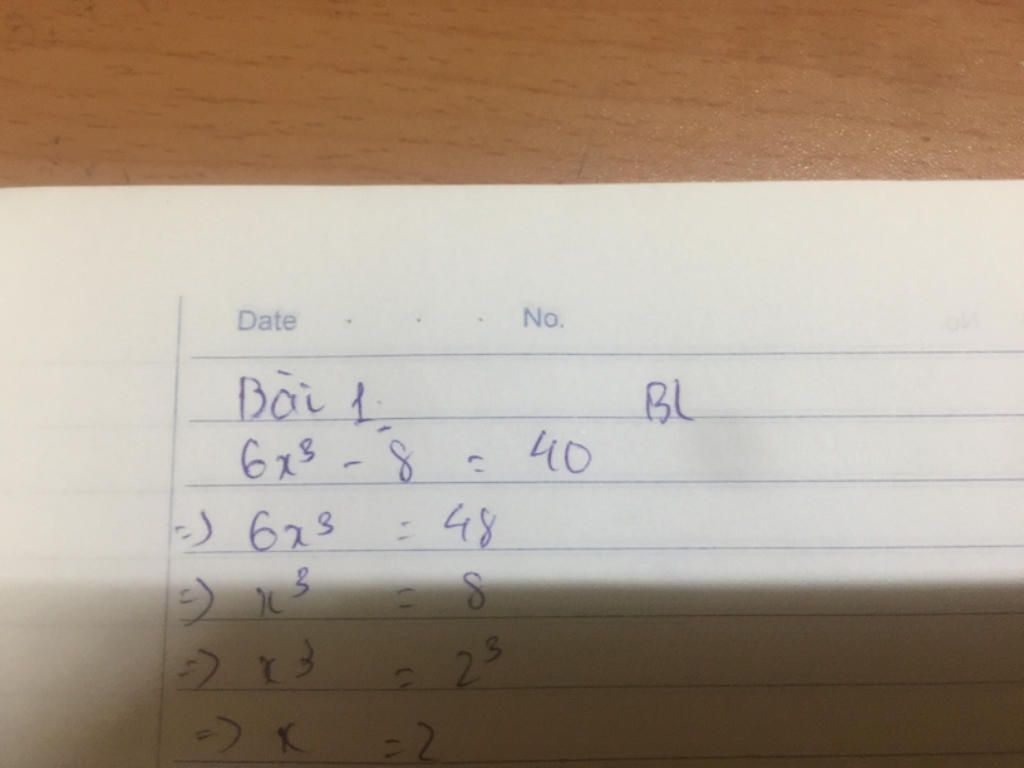 Date . . . No.
Bài 1. BL
6x³ - 8 = 40
=) 6x³ = 48
=) x³ = 8
=) x³ = 2³
=) x = 2